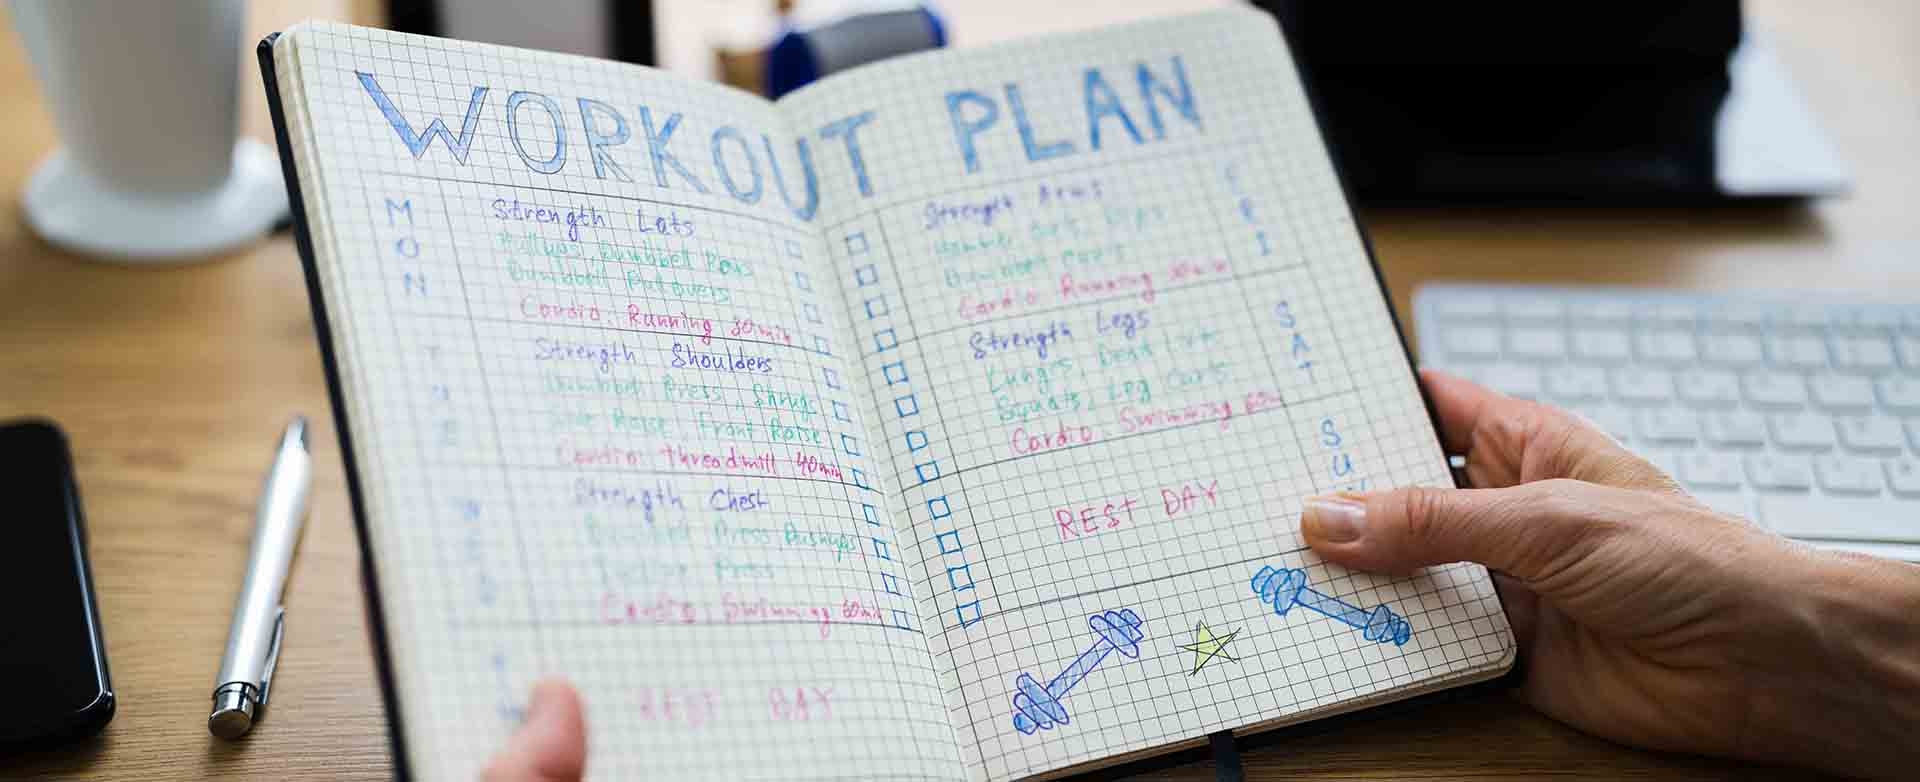 WORKOUT PLAN
MON
Strength Lats
Pullups, Dumbbell Rows
Dumbbell Pullovers
Cardio. Running 30min
TUE
Strength Shoulders
Dumbbel Press, Shrugs
Side Raise, Front Raise
Cardio threadmill 40min
WED
Strength Chest
Dumbbell Press, Pushups
Press
Cardio, Swimming 60min
REST DAY
FRI
Strength Arms
Cardio. Running 30min
SAT
Strength Legs
Lunges, Dead Lift
Squats, Leg Curls
Cardio. Swimming 60m
SU
REST DAY